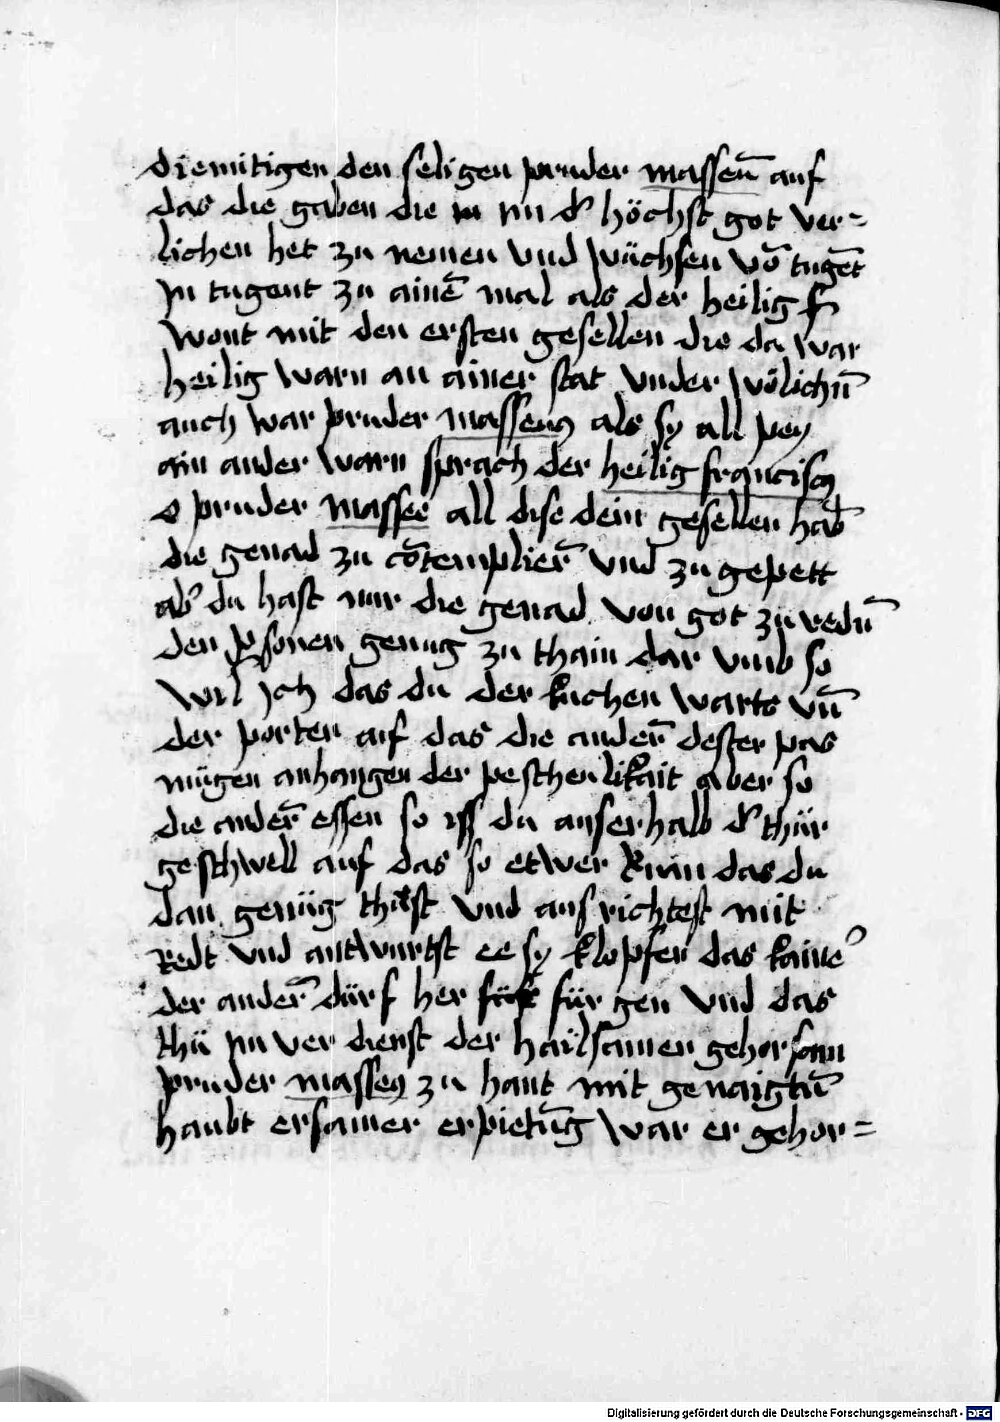 diemütigen den seligen pruder massen̄ auf
das die gaben die in nu d' höchst got ver=
lichen het zu nemen vnd wüchsen vō tugēt
jn tugent zu ainē mal als der heilig f
wont mit den ersten gesellen die da war
heilig warn an ainer stat vnder wölichn̄
auch war pruder masseus als sy all pey
ain ander warn sprach der heilig franciscus
o pruder massee all dise dein gesellen hab̄
die genad zu cōtemplier̄ vnd zu gepett
ab' du hast nur die genad von got zu redn̄
den p̱sonen genug zu thain dar vmb so
wil jch das du der kuchen warts vn̄
der porten auf das die ander̄ dester pas
mügen anhangen der peschenlikait aber so
die ander̄ essen so iss du auserhalb d' thür
geschwell auf das so etwer kum das du
dan genüg thüst vnd ausrichtest mit
Redt vnd antwurtst ee sy klopfen das kaine'
der ander̄ dürf her für gen vnd das
thü jm ver dienst der hailsamen gehorsam
pruder masseus zu hant mit genaigtn̄
haubt ersamer erpietūg war er gehor=
Digitalisierung gefördert durch die Deutsche Forschungsgemeinschaft - DFG